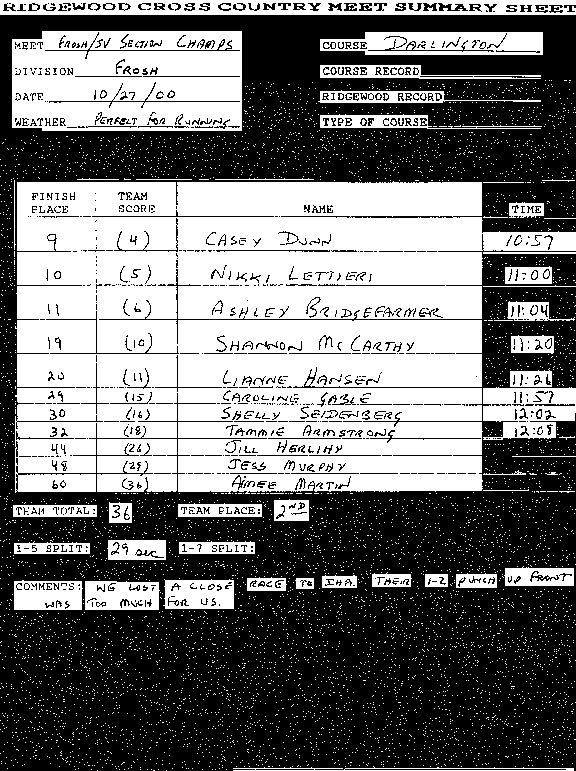 RIDGEWOOD CROSS COUNTRY MEET SUMMARY SHEET
MEET FROSH/JV SECTION CHAMPS COURSE DARLINGTON
DIVISION FROSH COURSE RECORD
DATE 10/27/00 RIDGEWOOD RECORD
WEATHER PERFECT FOR RUNNING TYPE OF COURSE
FINISH PLACE TEAM SCORE NAME TIME
9 (4) CASEY DUNN 10:57
10 (5) NIKKI LETTIERI 11:00
11 (6) ASHLEY BRIDGEFARMER 11:04
19 (10) SHANNON McCARTHY 11:20
20 (11) LIANNE HANSEN 11:26
29 (15) CAROLINE GABLE 11:57
30 (16) SHELLY SEIDENBERG 12:02
32 (18) TAMMIE ARMSTRONG 12:08
44 (26) JILL HERLIHY
48 (28) JESS MURPHY
60 (36) AIMEE MARTIN
TEAM TOTAL: 36 TEAM PLACE: 2ND
1-5 SPLIT: 29 sec 1-7 SPLIT:
COMMENTS: WE LOST A CLOSE RACE TO IHA. THEIR 1-2 PUNCH UP FRONT
WAS TOO MUCH FOR US.